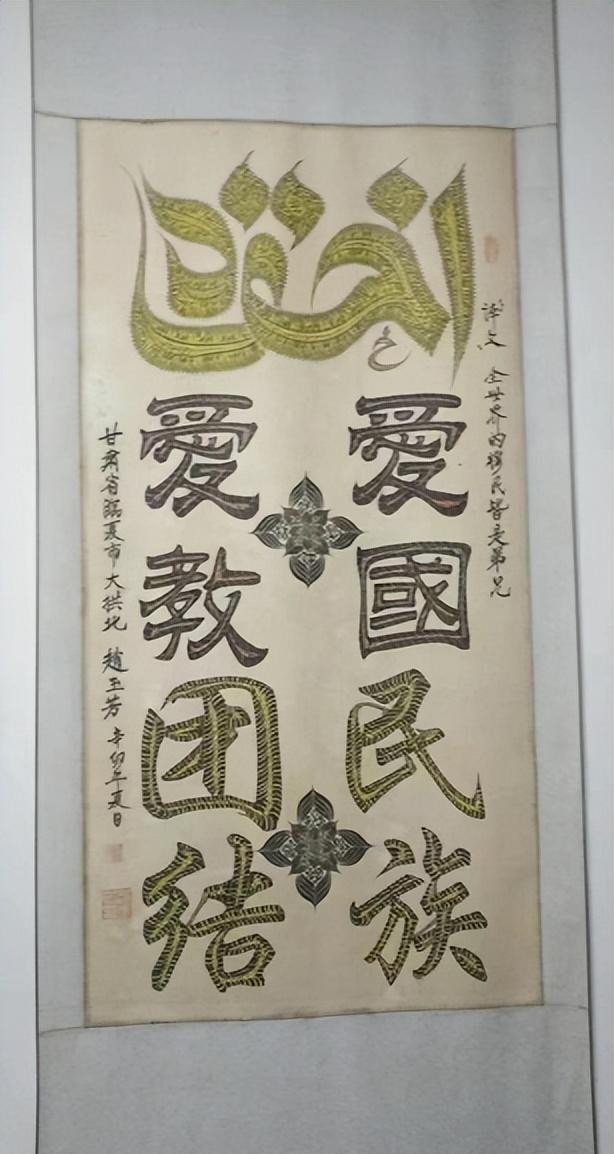 译文 全世界的穆民皆是弟兄
愛國民族
愛教团结
甘肅省臨夏市大拱北 趙玉芳 辛卯年夏日